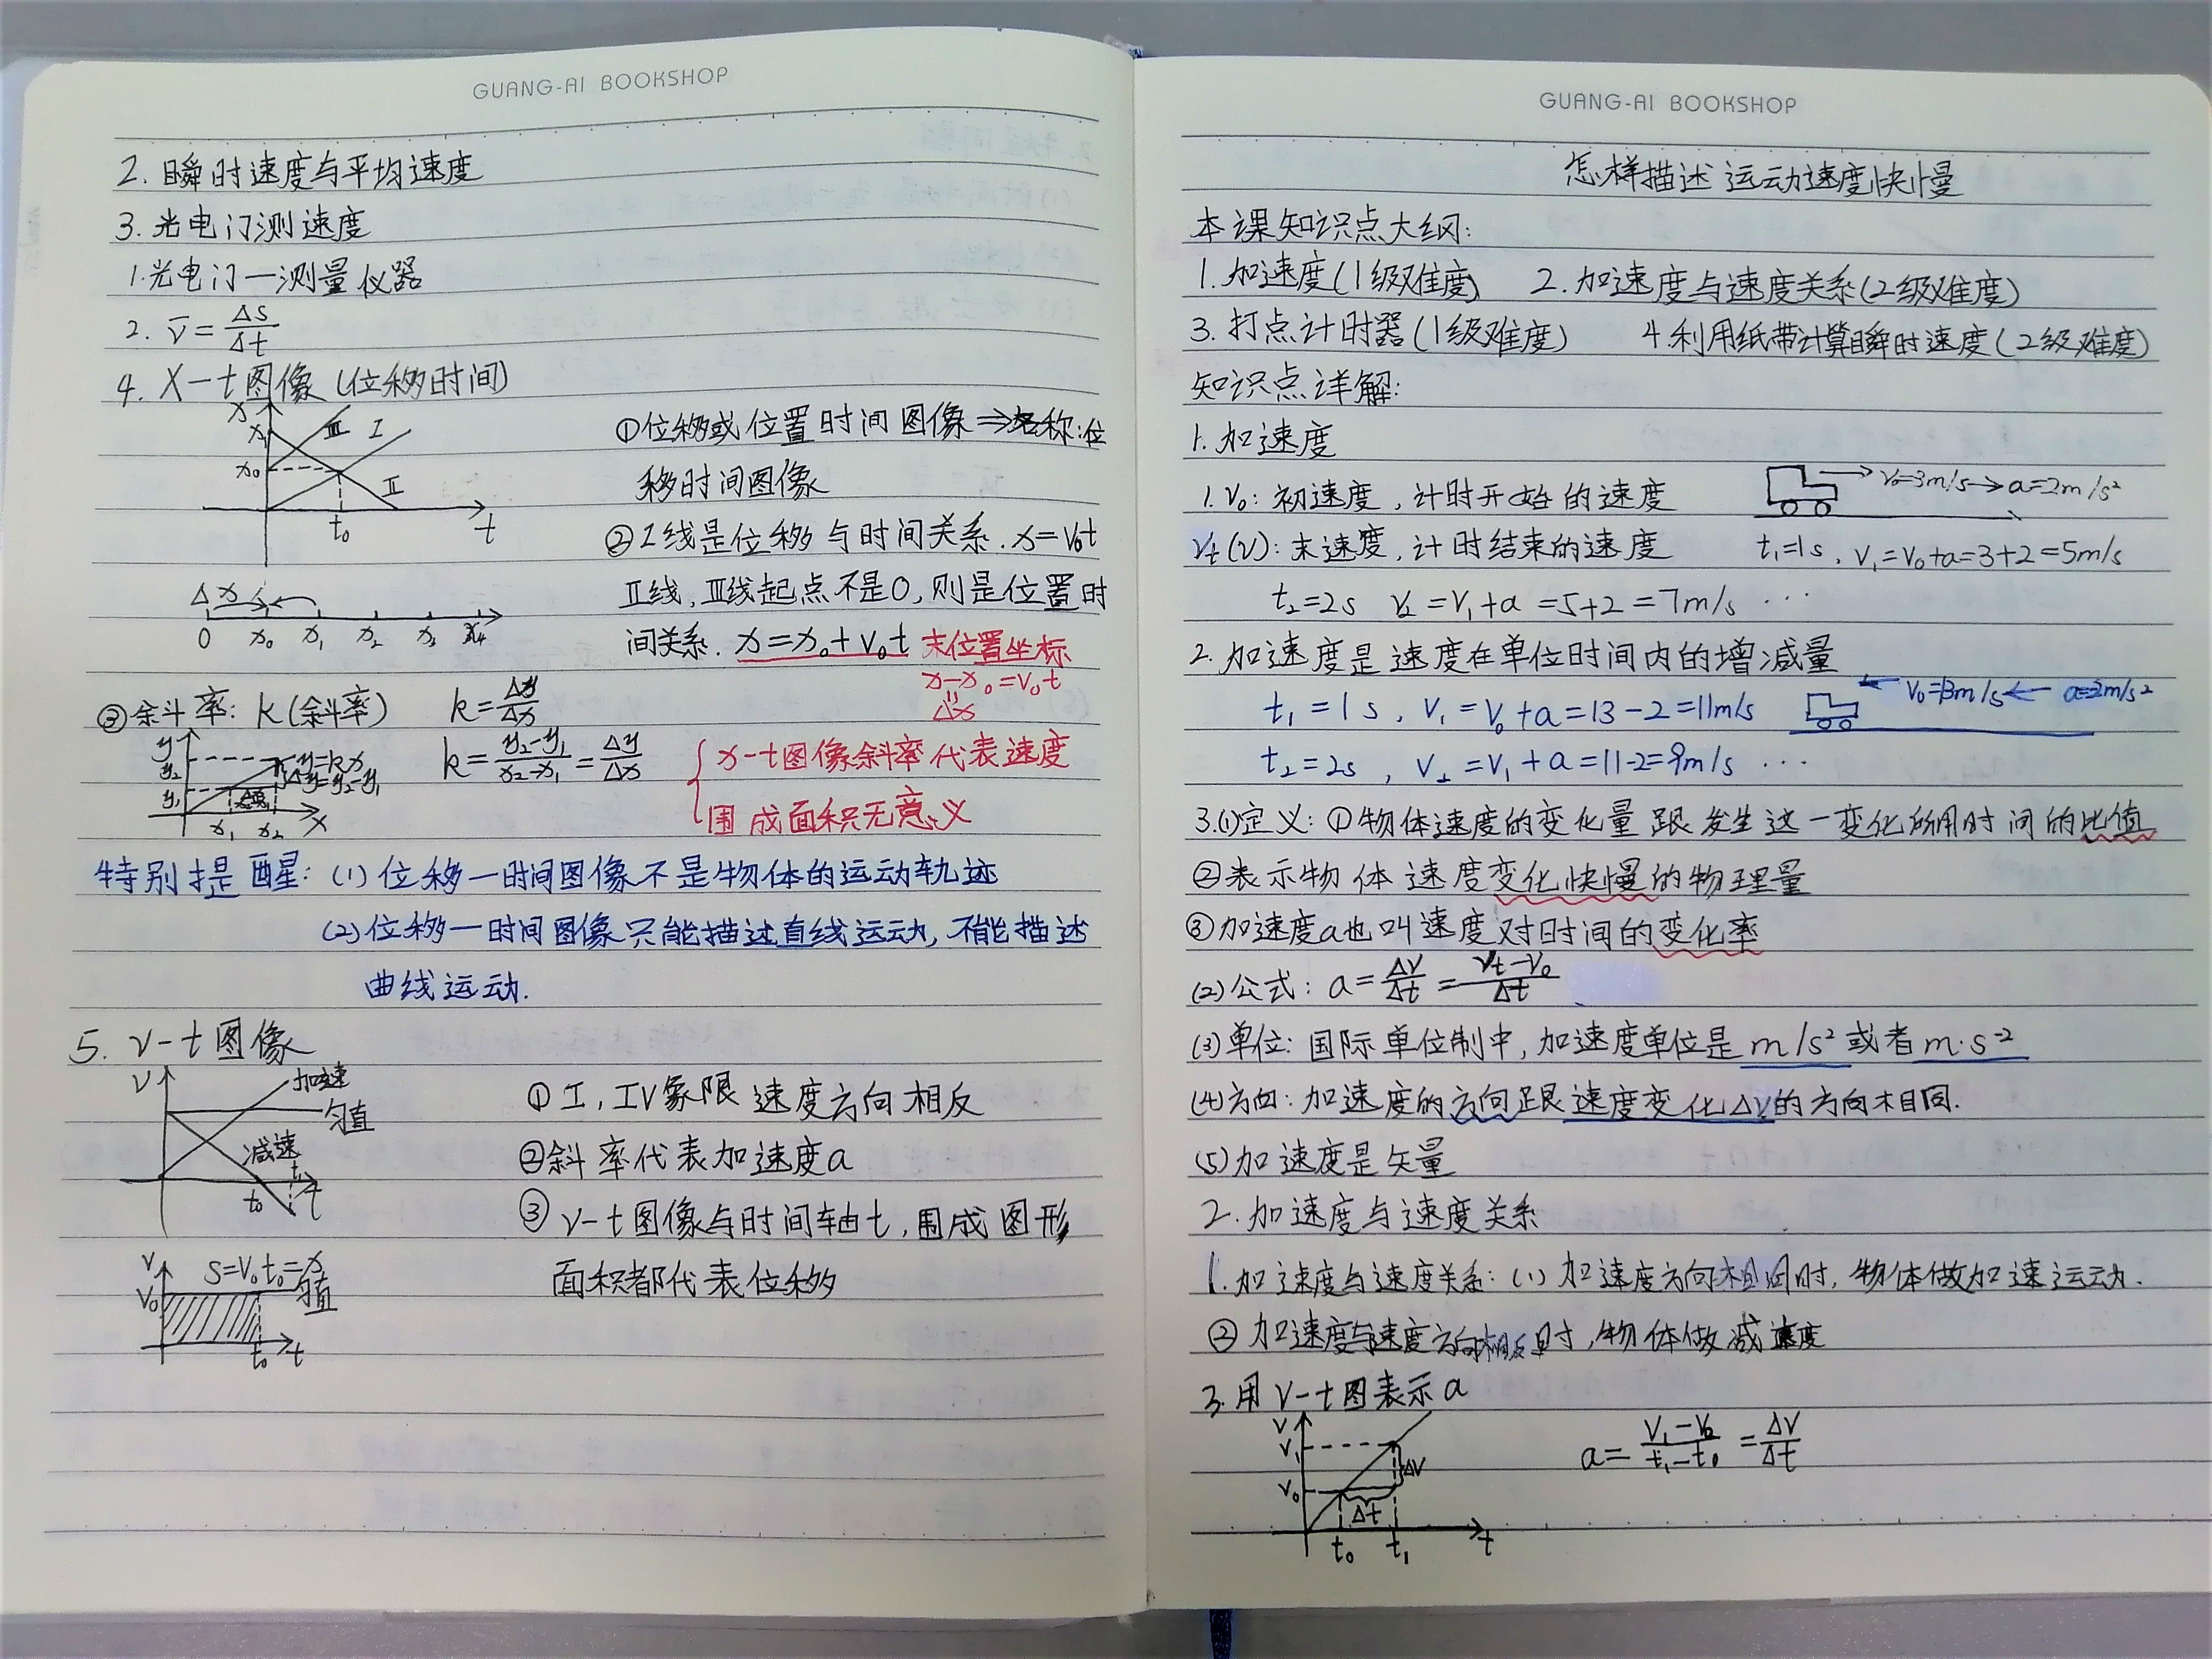 GUANG-AI BOOKSHOP
2. 瞬时速度与平均速度
3. 光电门测速度
1. 光电门—测量仪器
2. v̄ = Δs/Δt
4. X-t图像(位移时间)
x
x₁
x₀
Ⅲ
Ⅰ
Ⅱ
t₀
t
①位移或位置时间图像⇒名称:位
移时间图像
②Ⅰ线是位移与时间关系. x=v₀t
Ⅱ线,Ⅲ线起点不是0,则是位置时
间关系. x=x₀+v₀t 末位置坐标
x-x₀=v₀t
Δx
Δx
0 x₀ x₁ x₂ x₃ x₄
③余斗率: k(余斗率) k=Δy/Δx
k=(y₂-y₁)/(x₂-x₁)=Δy/Δx
y
y₂
y₁
y=kx
Δy=y₂-y₁
x₁ x₂ x
x-t图像余斗率代表速度
围成面积无意义
特别提醒: (1) 位移—时间图像不是物体的运动轨迹
(2) 位移—时间图像只能描述直线运动, 不能描述
曲线运动.
5. v-t图像
v
加速
匀直
减速
t₁
t₀ t
① I, IV象限速度方向相反
②斜率代表加速度a
③ v-t图像与时间轴t, 围成图形,
面积都代表位移
v
S=v₀t₀=x
v₀
匀直
t₀ t
GUANG-AI BOOKSHOP
怎样描述运动速度快慢
本课知识点大纲:
1. 加速度(1级难度) 2. 加速度与速度关系(2级难度)
3. 打点计时器(1级难度) 4. 利用纸带计算瞬时速度(2级难度)
知识点详解:
1. 加速度
1. v₀: 初速度, 计时开始的速度
v₀=3m/s→a=2m/s²
vt(v): 末速度, 计时结束的速度 t₁=1s, v₁=v₀+a=3+2=5m/s
t₂=2s v₂=v₁+a=5+2=7m/s ···
2. 加速度是速度在单位时间内的增减量
t₁=1s, v₁=v₀+a=13-2=11m/s
v₀=13m/s← a=2m/s²
t₂=2s, v₂=v₁+a=11-2=9m/s ···
3.(1)定义: ①物体速度的变化量跟发生这一变化所用时间的比值
②表示物体速度变化快慢的物理量
③加速度a也叫速度对时间的变化率
(2)公式: a=Δv/Δt=(vt-v₀)/Δt
(3)单位: 国际单位制中, 加速度单位是 m/s² 或者 m·s⁻²
(4)方向: 加速度的方向跟速度变化Δv的方向相同.
(5)加速度是矢量
2. 加速度与速度关系
1. 加速度与速度关系: (1) 加速度方向相同时, 物体做加速运动.
② 加速度与速度方向相反时, 物体做减速度
3. 用v-t图表示a
v
v₁
v₀
Δv
Δt
t₀ t₁ t
a=(v₁-v₀)/(t₁-t₀)=Δv/Δt